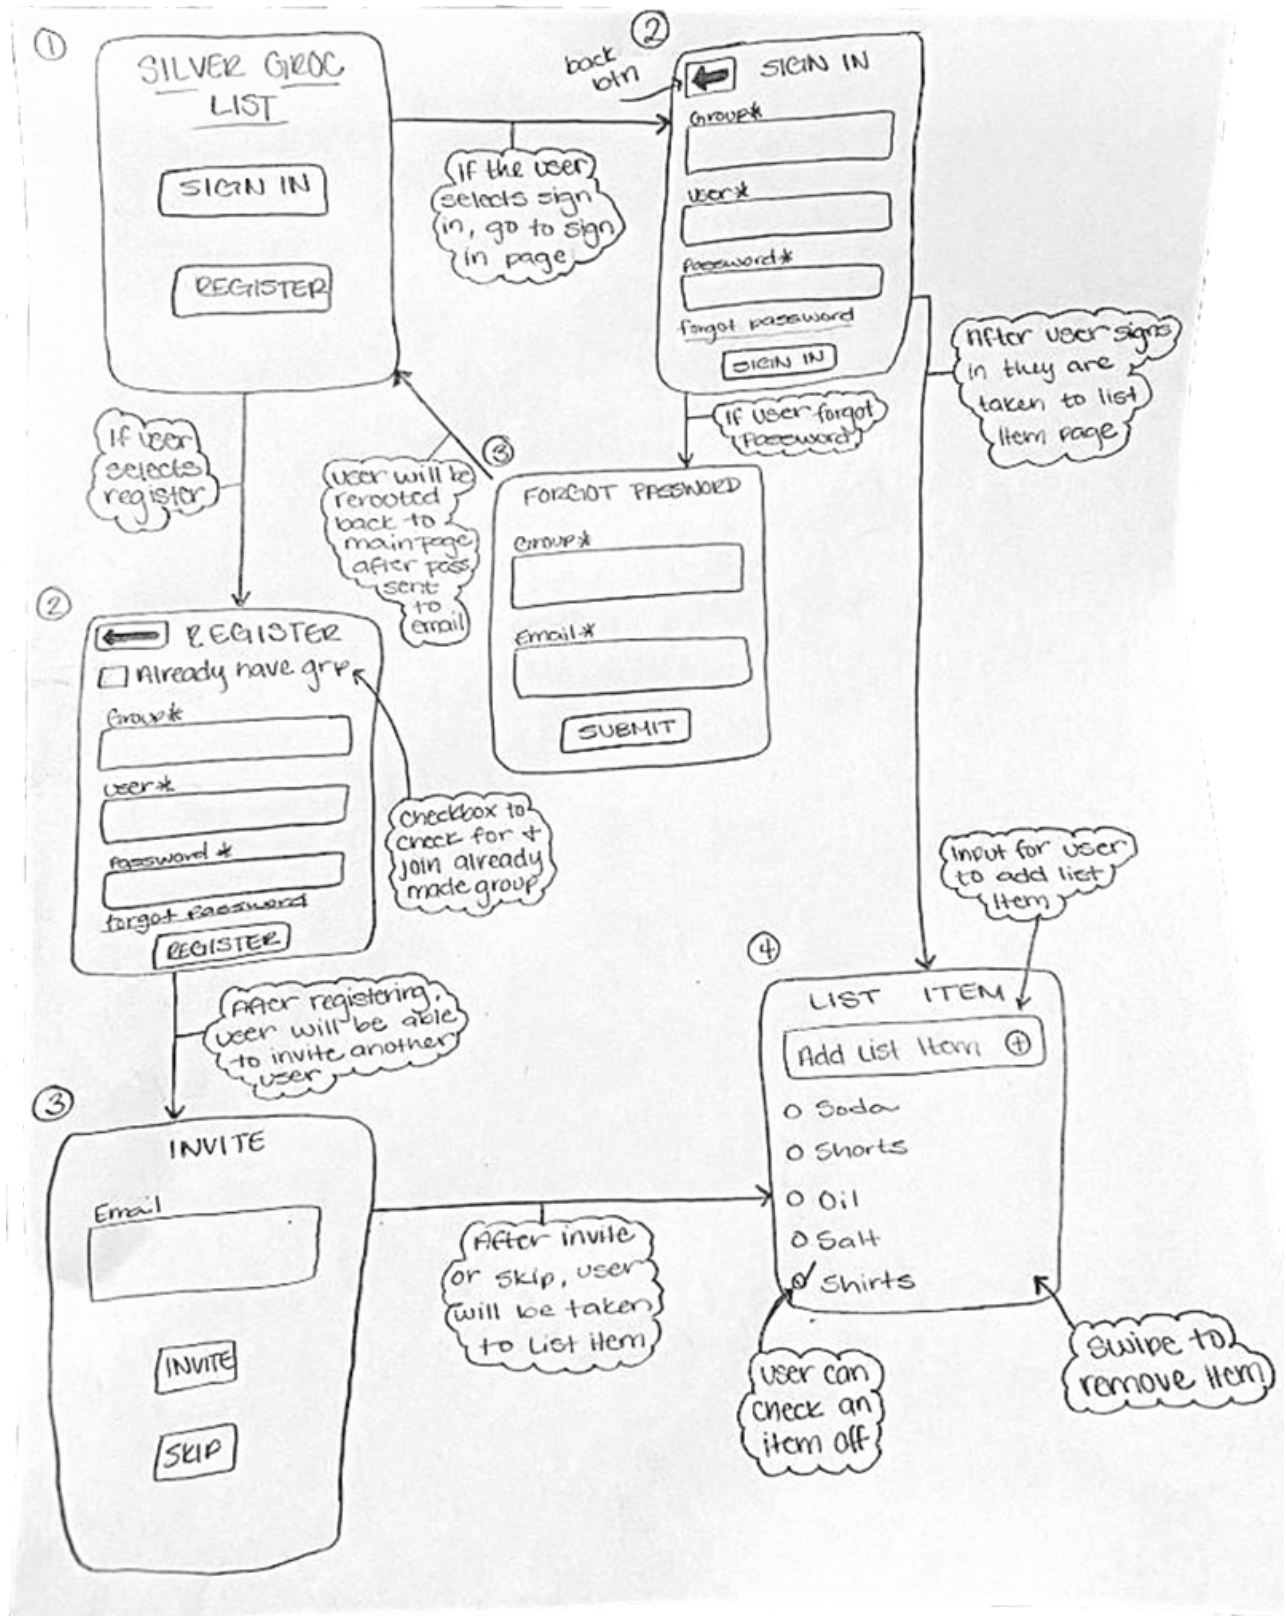 ①
SILVER GROC
LIST
SIGN IN
REGISTER
If the user
selects sign
in, go to sign
in page
②
back
btn
SIGN IN
Group*
User*
Password*
forgot password
SIGN IN
After user signs
in they are
taken to list
Item page
If user forgot
Password
If user
selects
register
user will be
rerooted
back to
main page
after pass
sent
to
email
③
FORGOT PASSWORD
Group*
Email*
SUBMIT
②
REGISTER
Already have grp
Group*
user*
Password*
forgot password
REGISTER
checkbox to
check for +
join already
made group
After registering,
user will be able
to invite another
user
③
INVITE
Email
INVITE
SKIP
After invite
or skip, user
will be taken
to List Item
Input for user
to add list
Item
④
LIST ITEM
Add List Item +
Soda
Shorts
Oil
Salt
Shirts
user can
check an
item off
Swipe to
remove Item